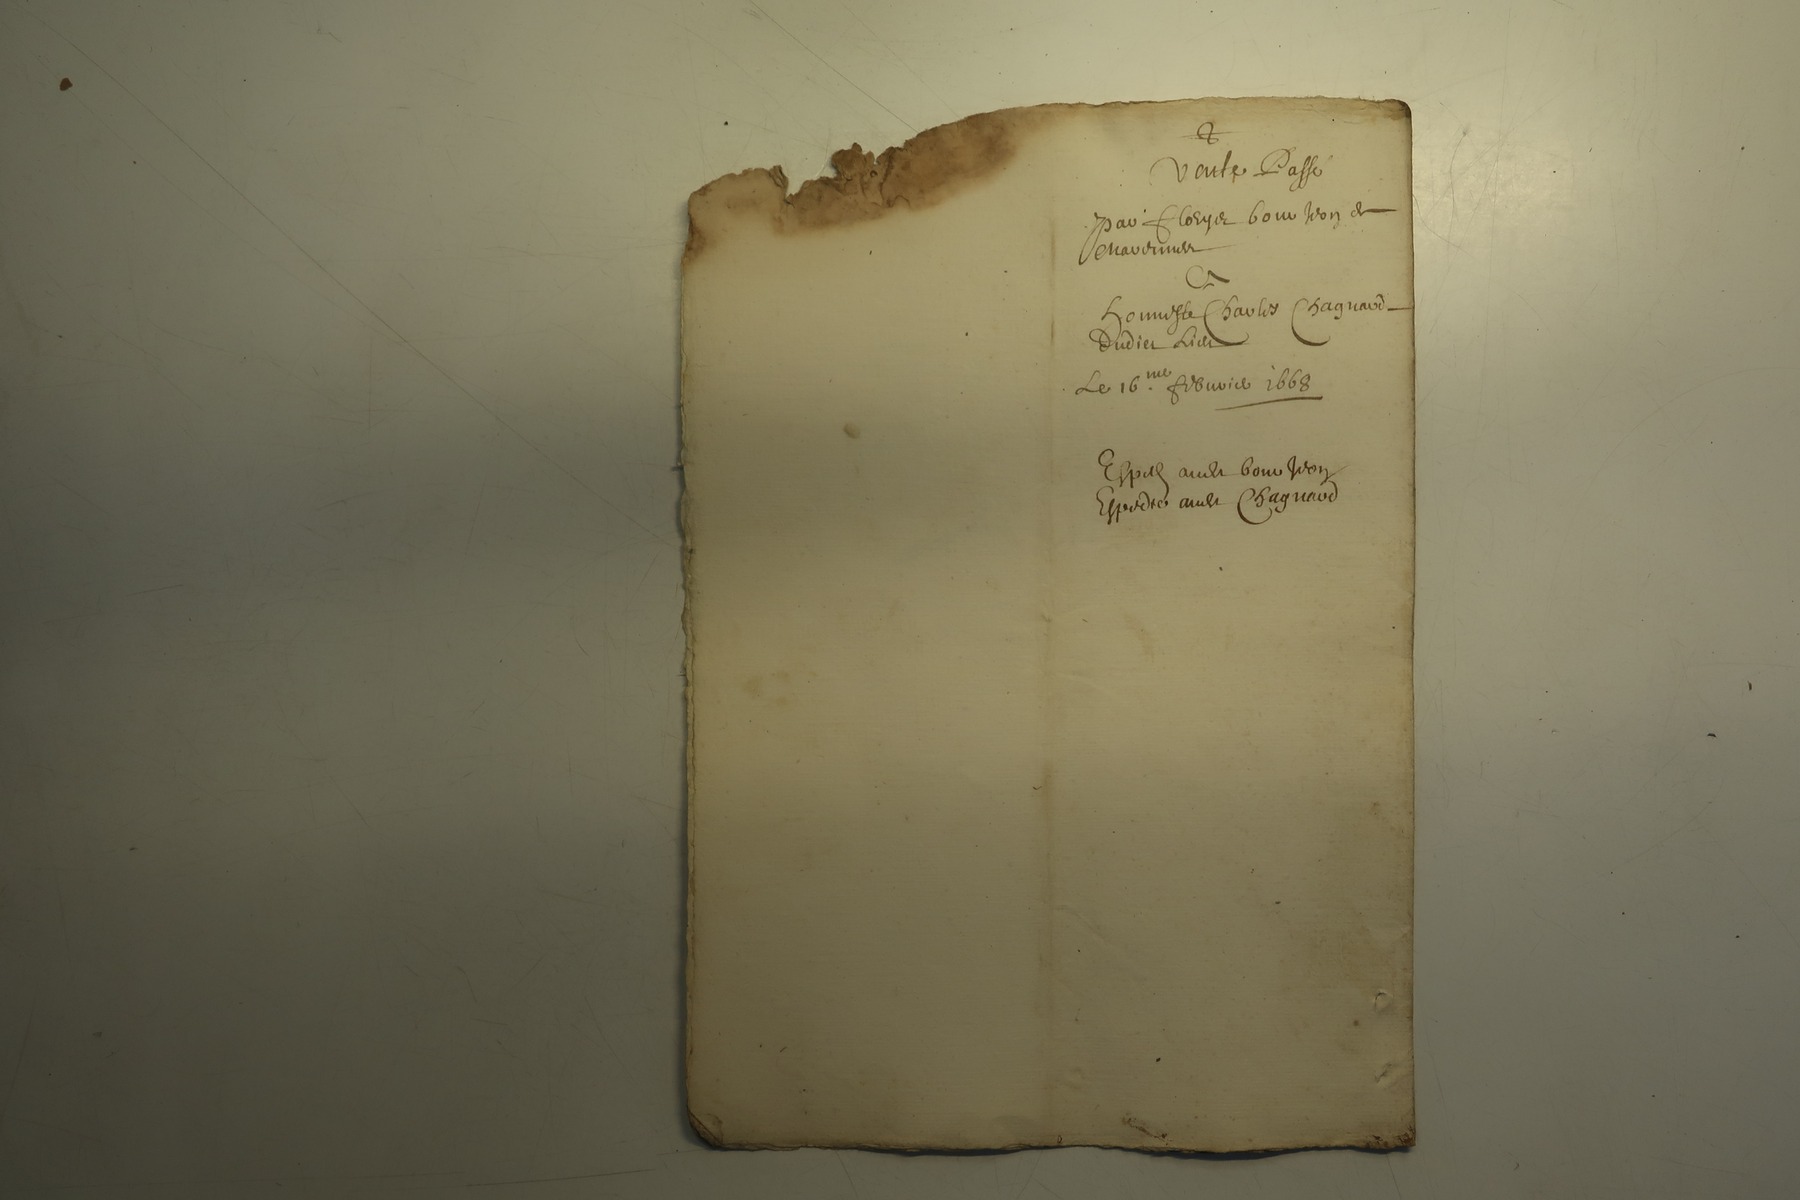 Vente Passé
par Eloeyer bourdon de
Charennes
A
Honneste Charles Chagnard
Dudict Lieu
Le 16.me febvrier 1668
Expedié audt bourdon
Expedié audt Chagnard